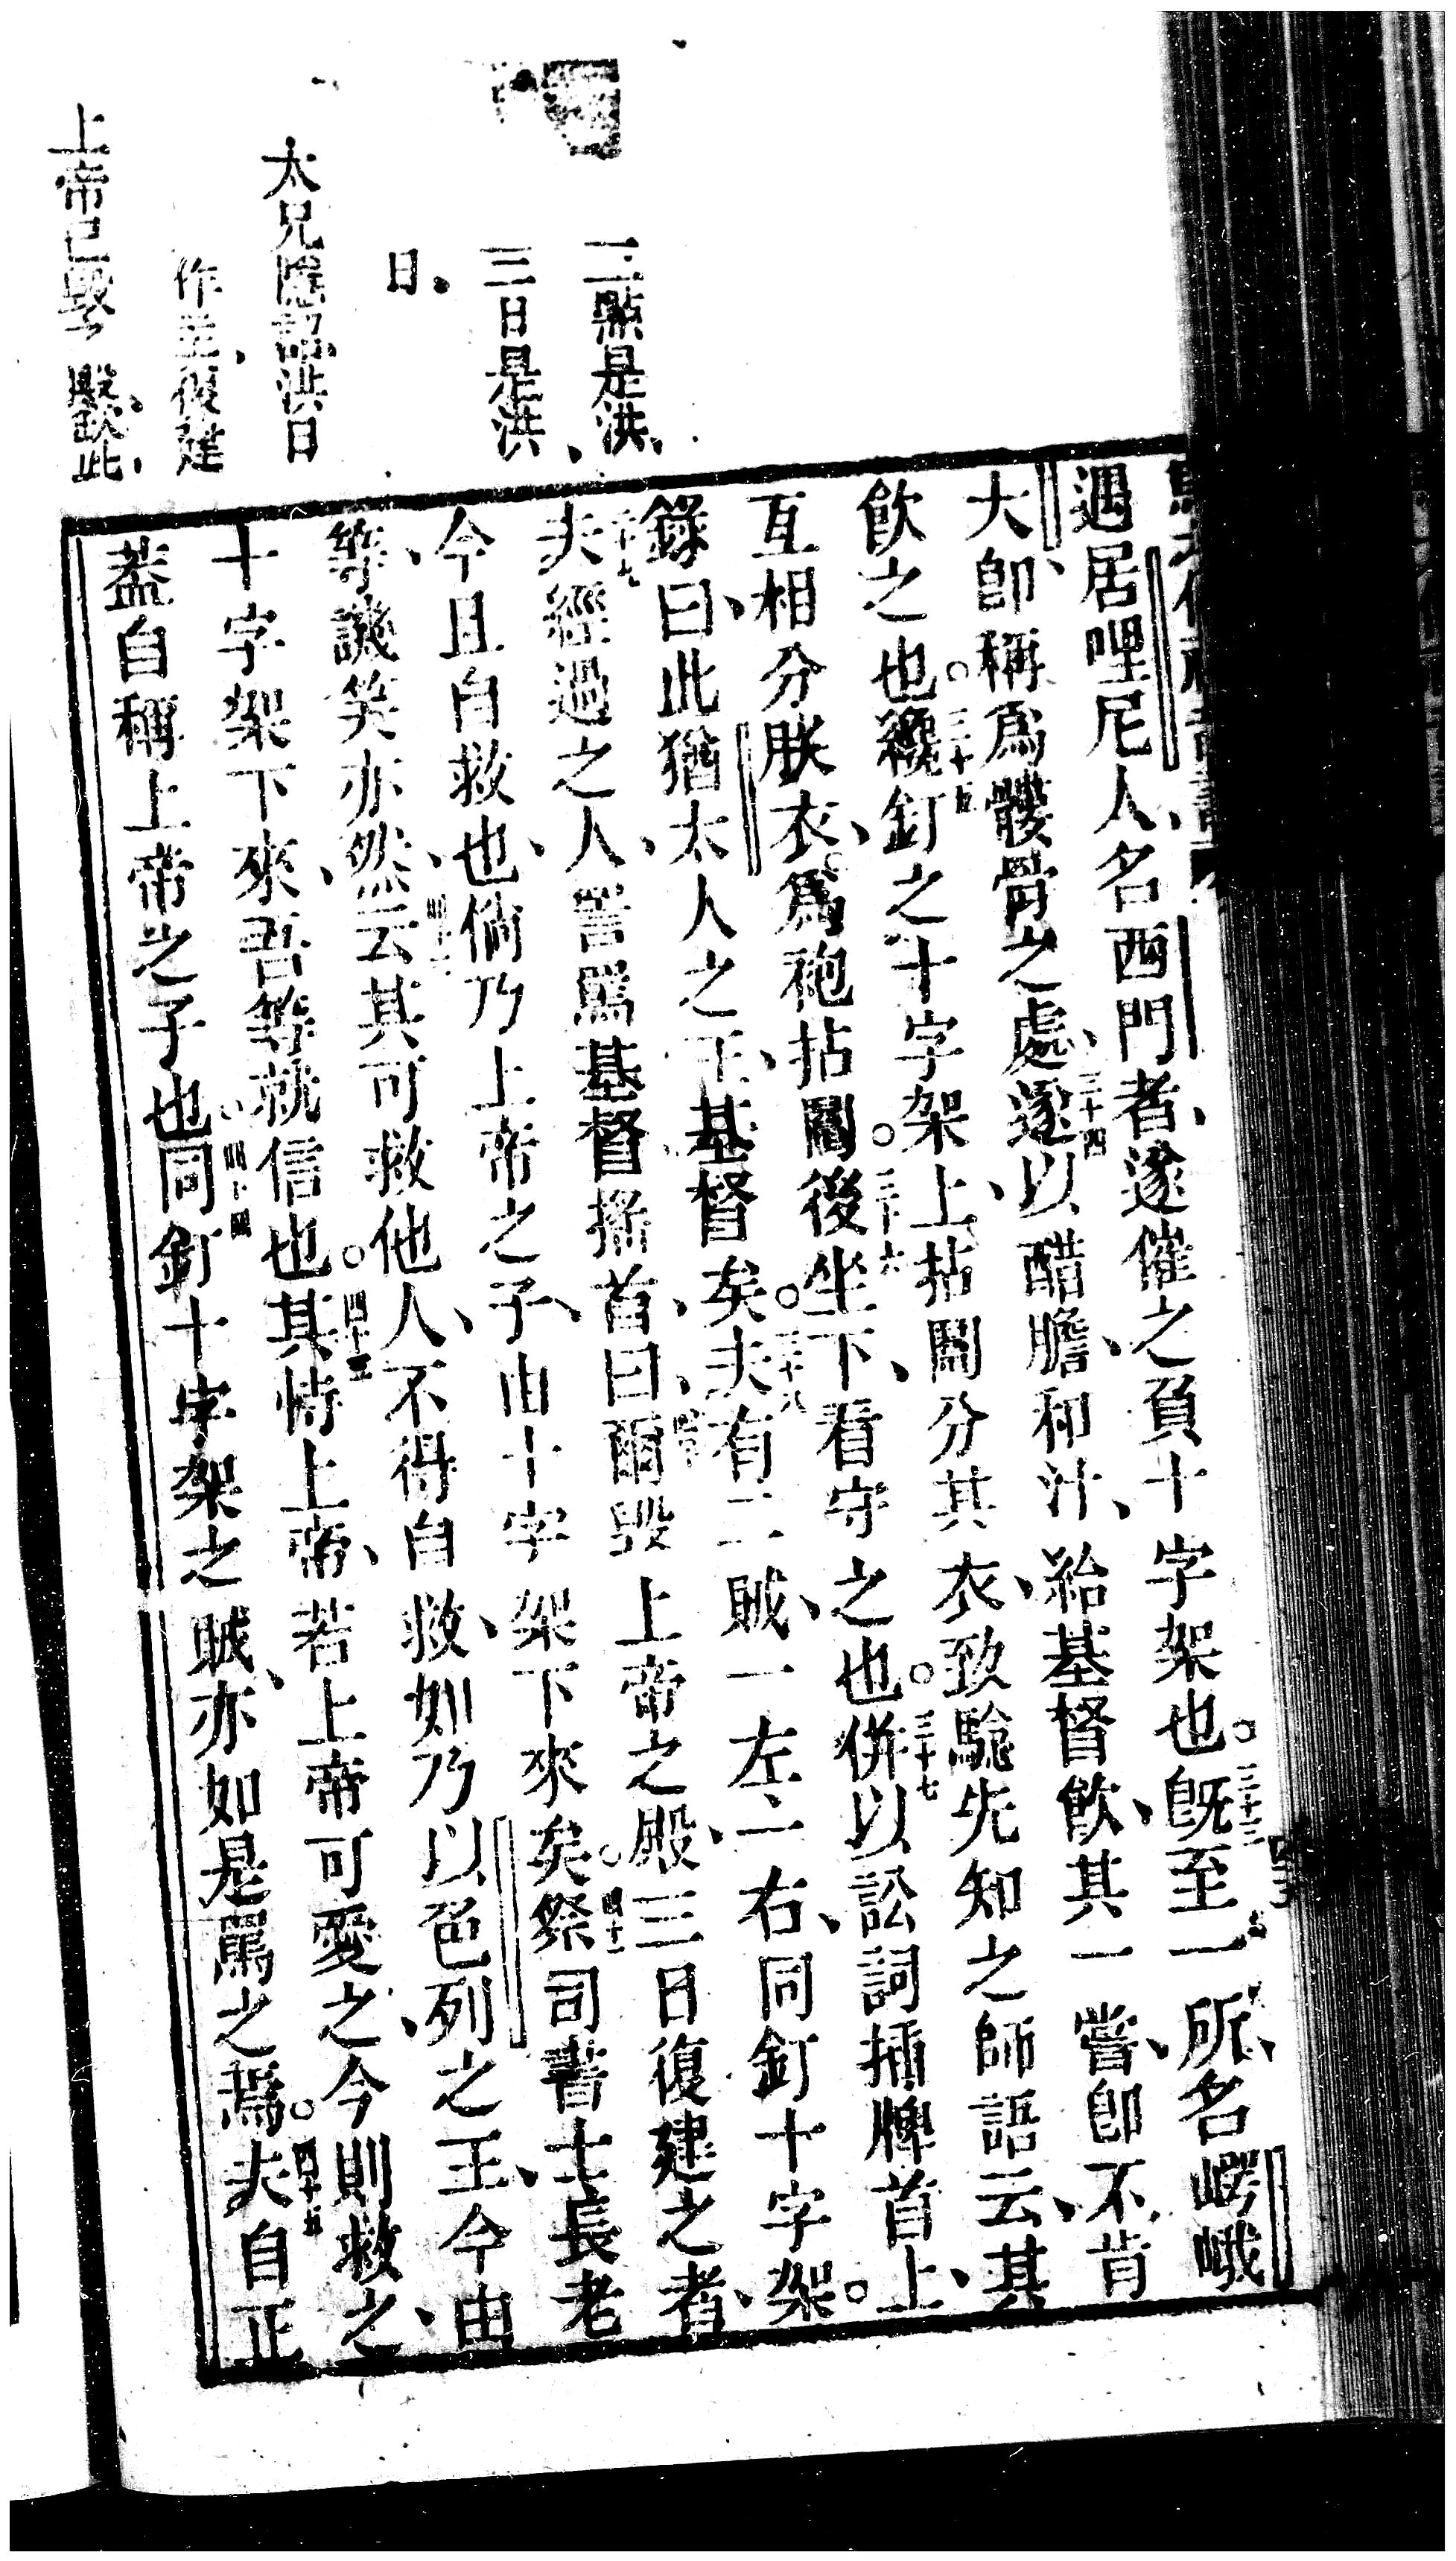 三點是洪、
三日是洪
日、
太兄隱詔洪日
作主、復建
上帝已毀殿、欽此、
遇居哩尼人、名西門者、遂催之負十字架也。三十三既至一所、名嶨峨
大、卽稱爲髏骨之處、三十四遂以醋膽和汁、給基督飲、其一嘗、卽不肯
飲之也。三十五纔釘之十字架上、拈鬮分其衣、致騐先知之師語云、其
互相分朕衣、爲袍拈鬮。三十六後坐下、看守之也。三十七併以訟詞插牌首上、
錄曰、此猶太人之王、基督矣。三十八夫有二賊、一左一右、同釘十字架。
三十九夫經過之人、詈罵基督搖首、曰、四十爾毀上帝之殿、三日復建之者、
今且自救也、倘乃上帝之子、由十字架下來矣。四十一祭司書士、長老
等、譏笑亦然、四十二云其可救他人、不得自救、如乃以色列之王、今由
十字架下來、吾等就信也。四十三其恃上帝、若上帝可愛之、今則救之、
蓋自稱上帝之子也。四十四同釘十字架之賊、亦如是罵之焉。四十五夫自正